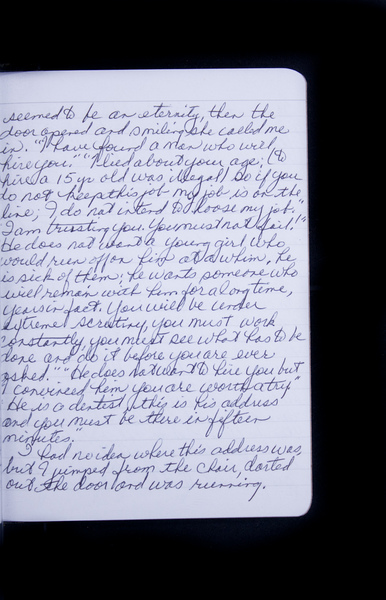 seemed to be an eternity, then the
door opened and smiling she called me
in. "I have found a man who will
hire you." "I lied about your age; (to
hire a 15 yr old was illegal) So if you
do not keep this job my job is on the
line; I do not intend to loose my job."
I am trusting you. You must not fail!"
He does not want a young girl who
would run off on him at a whim, he
is sick of them; he wants someone who
will remain with him for a long time,
years in fact. You will be under
extreme scrutiny, you must work
constantly, you must see what has to be
done and do it before you are ever
asked." "He does not want to hire you but
I convinced him you are worth a try."
He is a dentist, this is his address
and you must be there in fifteen
minutes."
I had no idea where this address was,
but I jumped from the chair, darted
out the door and was running.